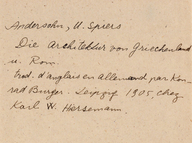 Andersohn, U. Spiers
Die Architektur von Griechenland
u. Rom.
trad. d'anglais en allemand par Kon-
rad Burger. Leipzig 1905, chez
Karl W. Hiersemann